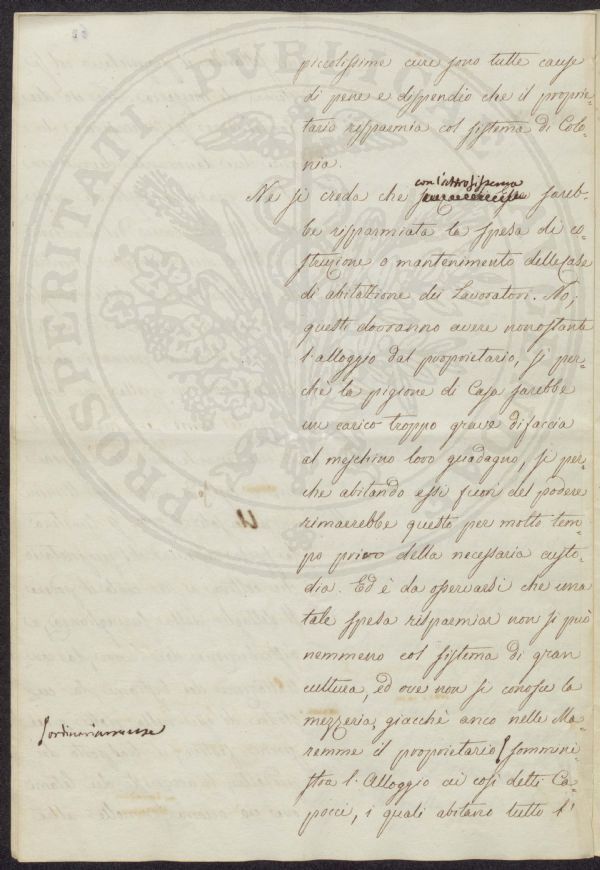 piccolissime cure sono tutte cause
di pene e dispendio che il proprie-
tario risparmia col sistema di Colo-
nia.
con l'altro sistema
Nè si creda che sareb-
be risparmiata la spesa di co-
struzione o mantenimento delle case
di abitazione dei Lavoratori. No;
questi dovranno avere nonostante
l'alloggio dal proprietario, sì per-
chè la pigione di Casa sarebbe
un carico troppo grave difaccia
al meschino loro guadagno, sì per-
che abitando essi fuori del podere
rimarrebbe questo per molto tem-
po privo della necessaria custo-
dia. Ed è da osservarsi che una
tale spesa risparmiar non si può
nemmeno col sistema di gran
cultura, ed ove non si conosce la
mezzeria, giacchè anco nelle Ma-
ordinariamente
remme il proprietario sommini-
stra l'Alloggio ai così detti Ca-
pocci, i quali abitano tutto l'
PROSPERITATI PUBLICAE